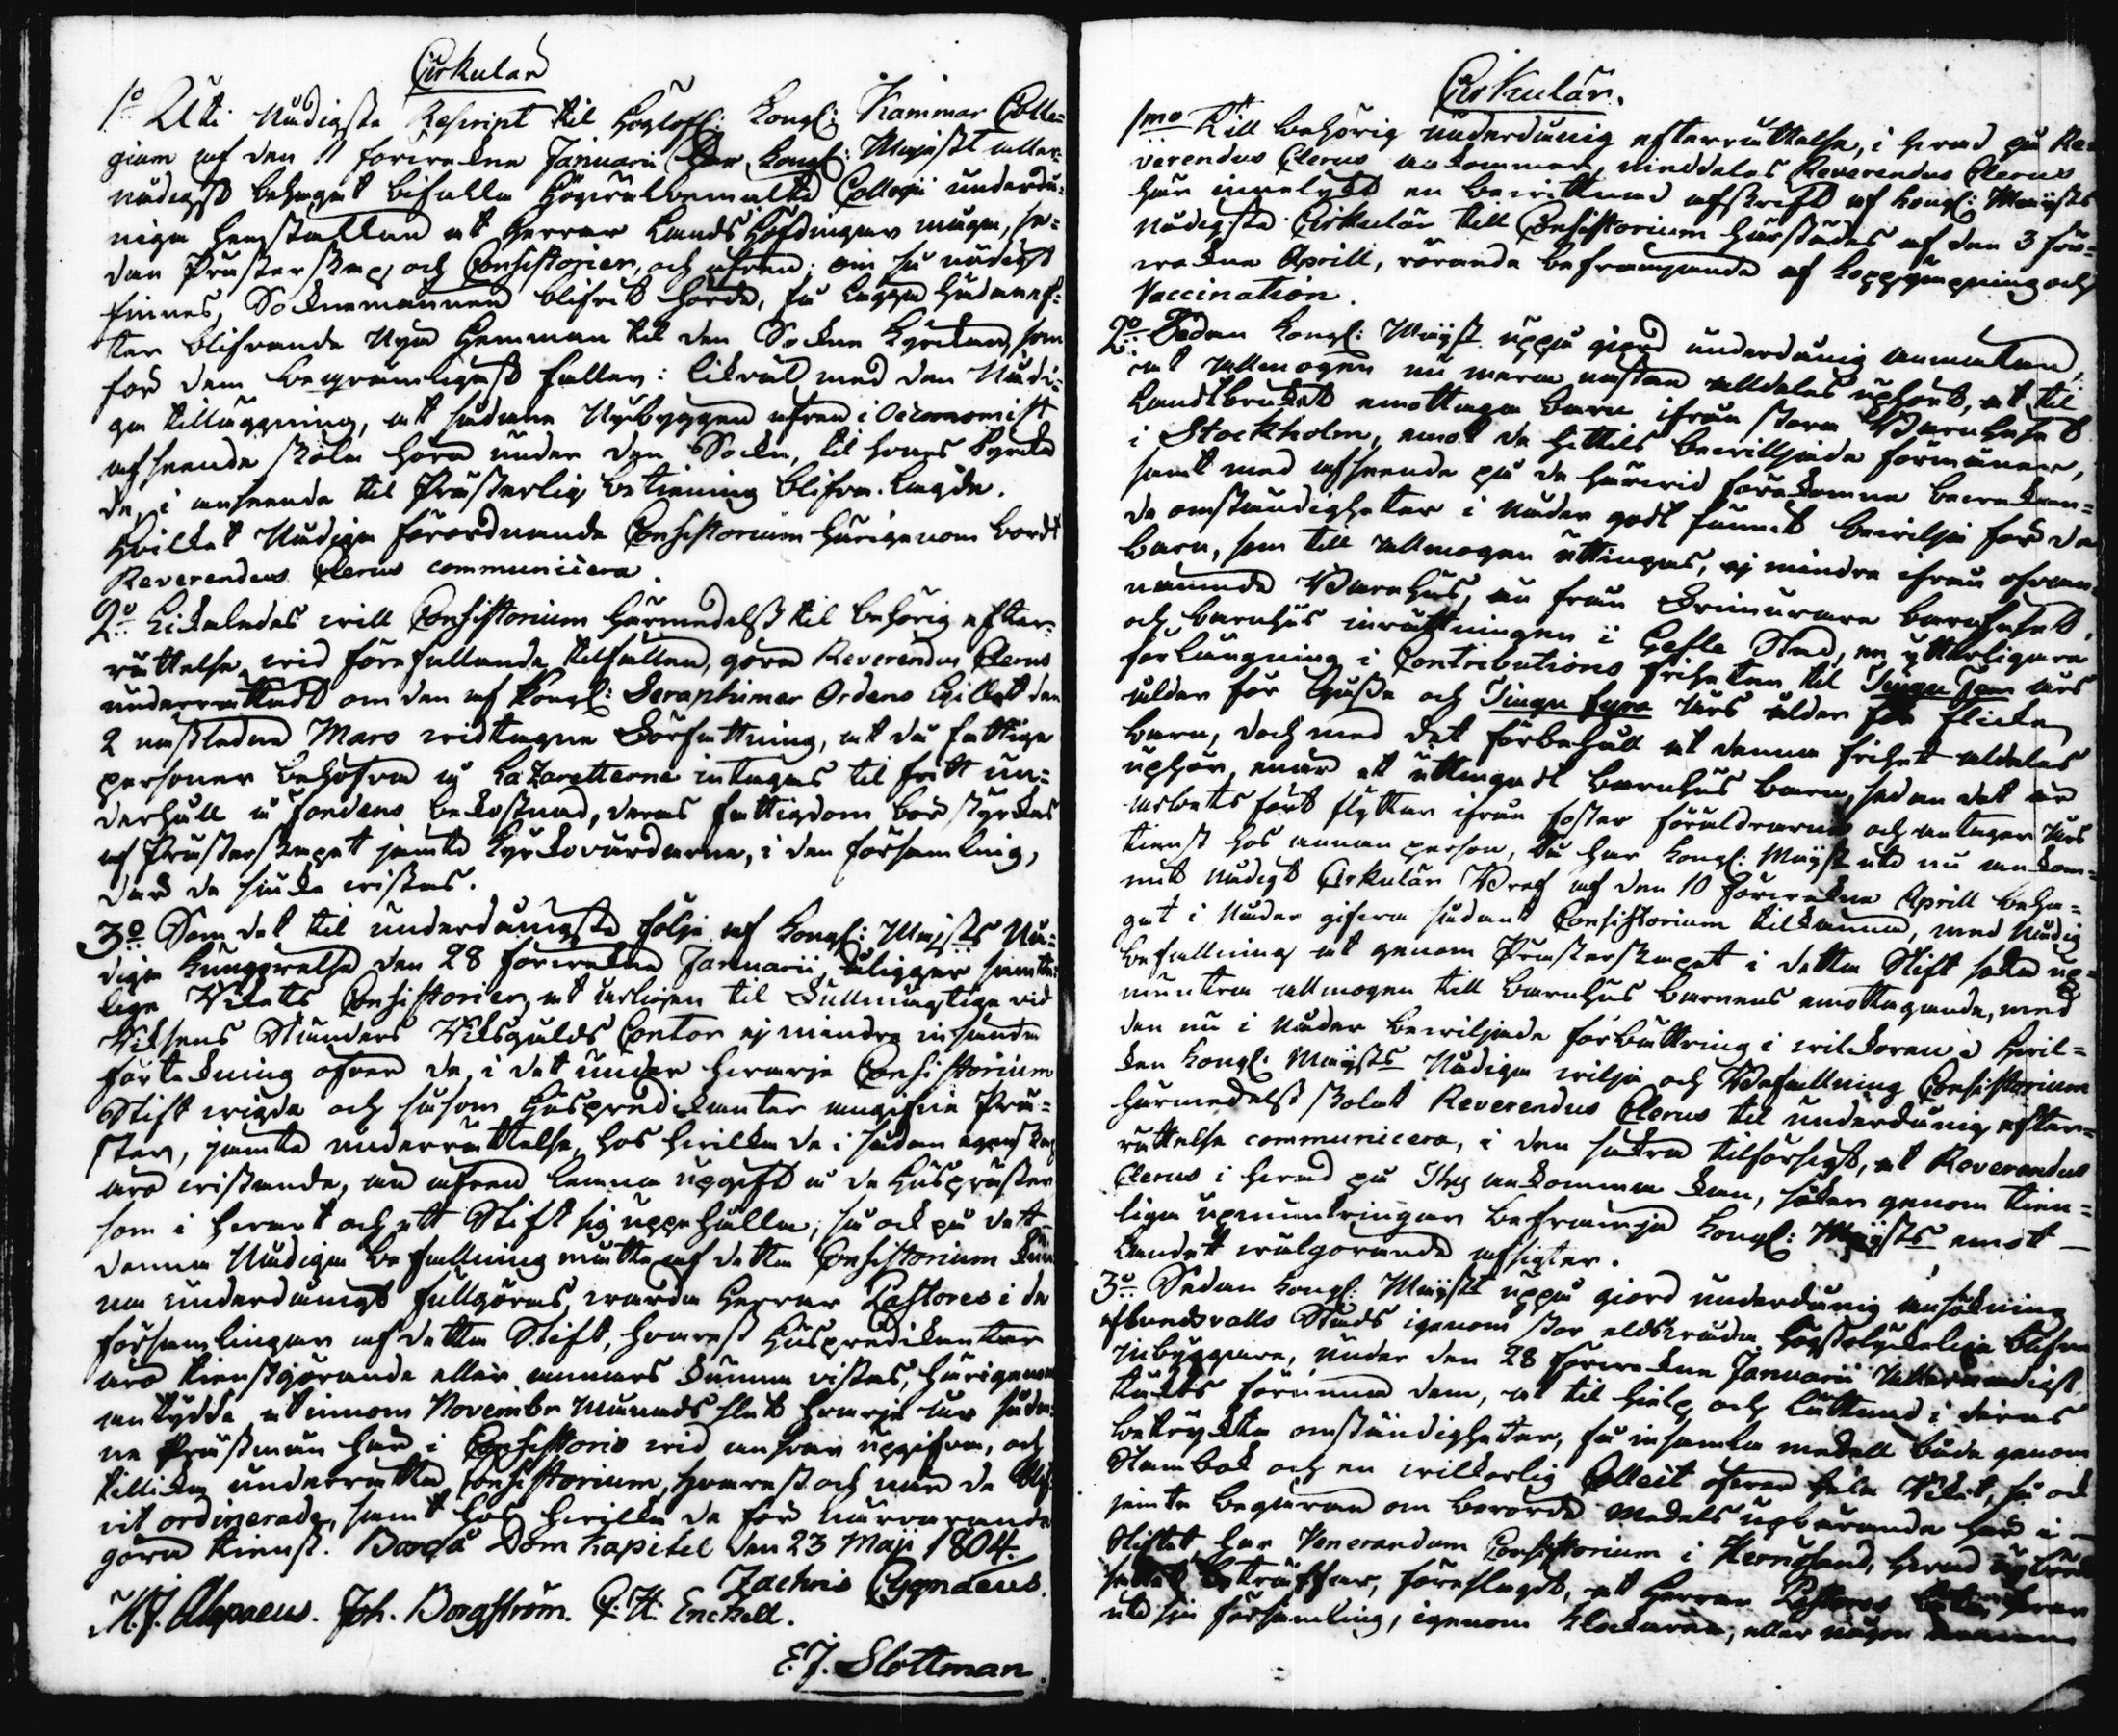 Cirkulär
1o Uti Nådigste Rescript til Höglofl: Kongl: Kammar Colle-
gium af den 11 förwekne Januarii har Kongl: Majestt aller-
nådigst behagat bifalla högwälbemälte Collegii underdå-
niga hemställan at Herrar Landshöfdingar måga, se-
dan Prästerskap och Consistorier, och äfven, om så nödigt
finnes, Socknemännen blifvit hörde, få lägga hädanef-
ter blifvande Nya Hemman til den Sockne Kyrkan, som
för dem beqvämligast faller: likväl med den Nådi-
ga tilläggning, at sådane Nybyggen äfven i Oeconomiskt
afseende skola höra under den Sockn, til hvars Kyrka
de, i anseende til Prästerlig betjening blifva lagde.
Hvilket Nådiga förordnande Consistorium härigenom bordt
Reverendus Clerus communicera.
2o Likaledes will Consistorium härmedelst til behörig efter-
rättelse wid förefallande tilfällen, göra Reverendus Clerus
underrättadt om den af Kongl: Seraphimer Ordens Gillet den
2 nästledne Mars widtagne Författning, at då fattige
personer behöfva å Lazaretterne intagas til fritt un-
derhåll å fondens bekostnad, deras fattigdom bör styrkas
af Prästerskapet jämte Kyrkovärdarne, i den församling,
der de sjuke wistas.
3o Som det til underdånigste följe af Kongl: Majsts Nå-
diga Kungörelse den 28 förwekne Januarii, åligger samte-
lige Rikets Consistorier, at årligen til Fullmägtige vid
Riksens Ständers Riksgälds Contor ej mindre insända
förtekning öfver de, i det under hwarje Consistorium
Stift wigde och såsom Huspredikanter antagne Prä-
ster, jämte underrättelse hos hwilka de i sådan egenskap
äro wistande, än äfven lemna upgift å de Huspräster
som i hwart och ett Stift sig uppehålla; så ock på det
denna Nådiga befallning måtte af detta Consistorium kun-
na underdånigst fullgöras, warda Herrar Pastores i de
församlingar af detta Stift, hwarest Huspredikanter
äro tienstgörande eller annars kunna vistas, härigenom
antydde at innom November Månads slut hwarje år såda-
ne Prästmän här i Consistorio wid answar upgifva, och
tillika underrätta Consistorium, hwarest och när de blif-
vit ordinerade, samt hos hwilka de för närwarande
göra tienst. Borgå Dom Kapitel den 23 Maji 1804.
Zachris Cygnaeus.
M. J. Alopaeus. Joh. Borgström. C. H. Enckell.
E. J. Slottman.
Cirkulär.
1mo Till behörig underdånig efterrättelse, i hwad på Re-
verendus Clerus ankommer, meddelas Reverendus Clerus
här innelykt en bewittnad afskrift af Kongl: Majsts
Nådigste Cirkulär till Consistorium härstädes af den 3 för-
wekne Aprill, rörande befrämjande af koppympning och
Vaccination.
2o Sedan Kongl: Majst uppå gjord underdånig anmälan,
at Allmogen nu mera nästan alldeles uphört, at til
Landtbruket emottaga barn ifrån stora Barnhuset
i Stockholm, emot de hittils bewilljade förmåner,
samt med afseende på de härwid förekomne bewekan-
de omständigheter i Nåder godt funnit bewilja för de
barn, som till Allmogen uttingas, ej mindre ifrån ofvan-
nämnde Barnhus, än från Frimurare barnhuset,
och barnhus inrättningen i Gefle Stad, en ytterligare
förlängning i Contributions friheten til Tjugu fem års
ålder för Gosse och Tjugu fyra års ålder för flicke
barn, doch med det förbehåll at denna frihet aldeles
uphör, enär et uttingadt barnhus barn, sedan det är
arbetsfört flyttar ifrån foster föräldrarne och antager års
tienst hos annan person, Så har Kongl: Majst uti nu ankom-
mit Nådigt Cirkulär Bref af den 10 förwekne Aprill beha-
gat i Nåder gifva sådant Consistorium tilkänna, med Nådig
befallning at genom Prästerskapet i detta Stift söka up-
muntra Allmogen till barnhus barnens emottagande, med
den nu i Nåder bewiljade förbättring i wilkoren: Hwil-
ken Kongl: Majsts Nådiga wilja och Befallning Consistorium
härmedelst skolat Reverendus Clerus til underdånig efter-
rättelse communicera, i den säkra tilförsigt, at Reverendus
Clerus i hwad på Thy ankomma kan, söker genom tien-
liga upmuntringar befrämja Kongl: Majsts emot
Landet wälgörande afsigter.
3o Sedan Kongl: Majst uppå giord underdånig ansökning
af Sundsvalls Stads igenom stor eldswåda högstolyckeliga blifvne
inbyggare, under den 28 förwekne Januarii Allernådigst
täckts förunna dem, at til hielp och lättnad i deras
betryckta omständigheter, få insamla medell både genom
Stambok och en wilkorlig Collect öfver hela Riket, så ock
jämte begäran om berörde Medels upbärande här i
Stiftet, har Venerandum Consistorium i Hernösand, hwad upbörds
sättet beträffar, föreslagit, at Herrar Pastores hwar
uti sin församling, igenom Klockaren, eller någon